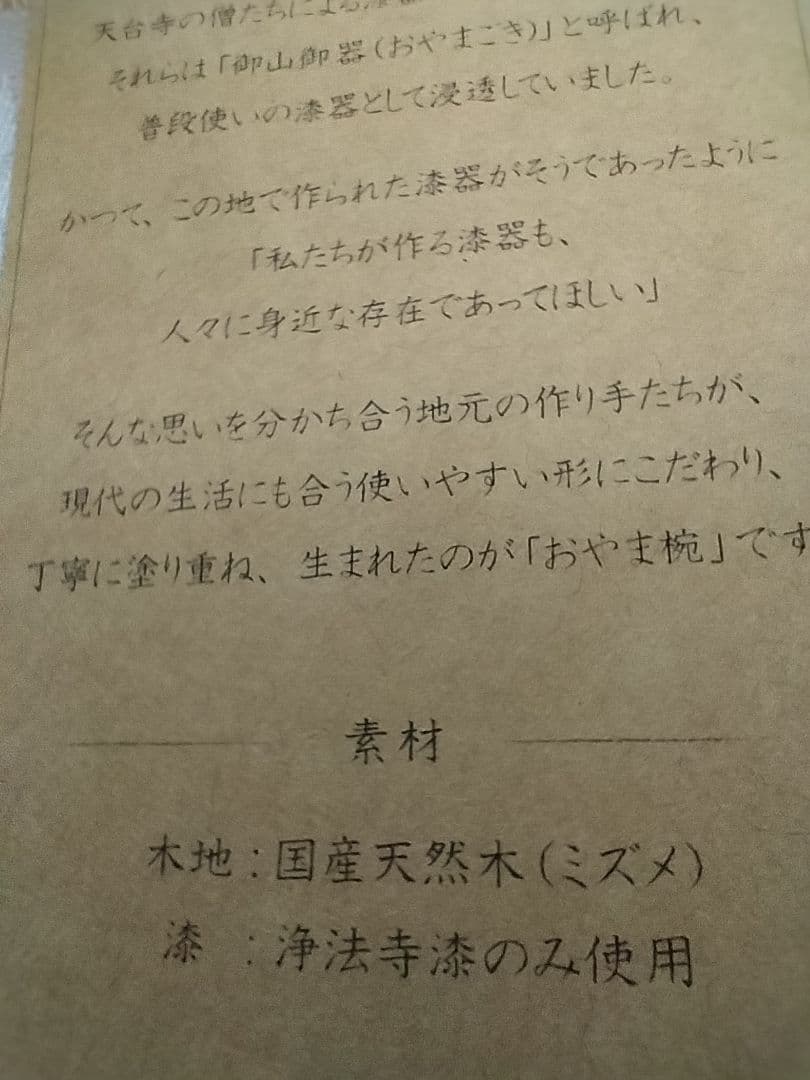 天台寺の僧たちによる漆器
それらは「御山御器(おやまごき)」と呼ばれ、
普段使いの漆器として浸透していました。
かつて、この地で作られた漆器がそうであったように
「私たちが作る漆器も、
人々に身近な存在であってほしい」
そんな思いを分かち合う地元の作り手たちが、
現代の生活にも合う使いやすい形にこだわり、
丁寧に塗り重ね、生まれたのが「おやま椀」です
素材
木地:国産天然木(ミズメ)
漆:浄法寺漆のみ使用